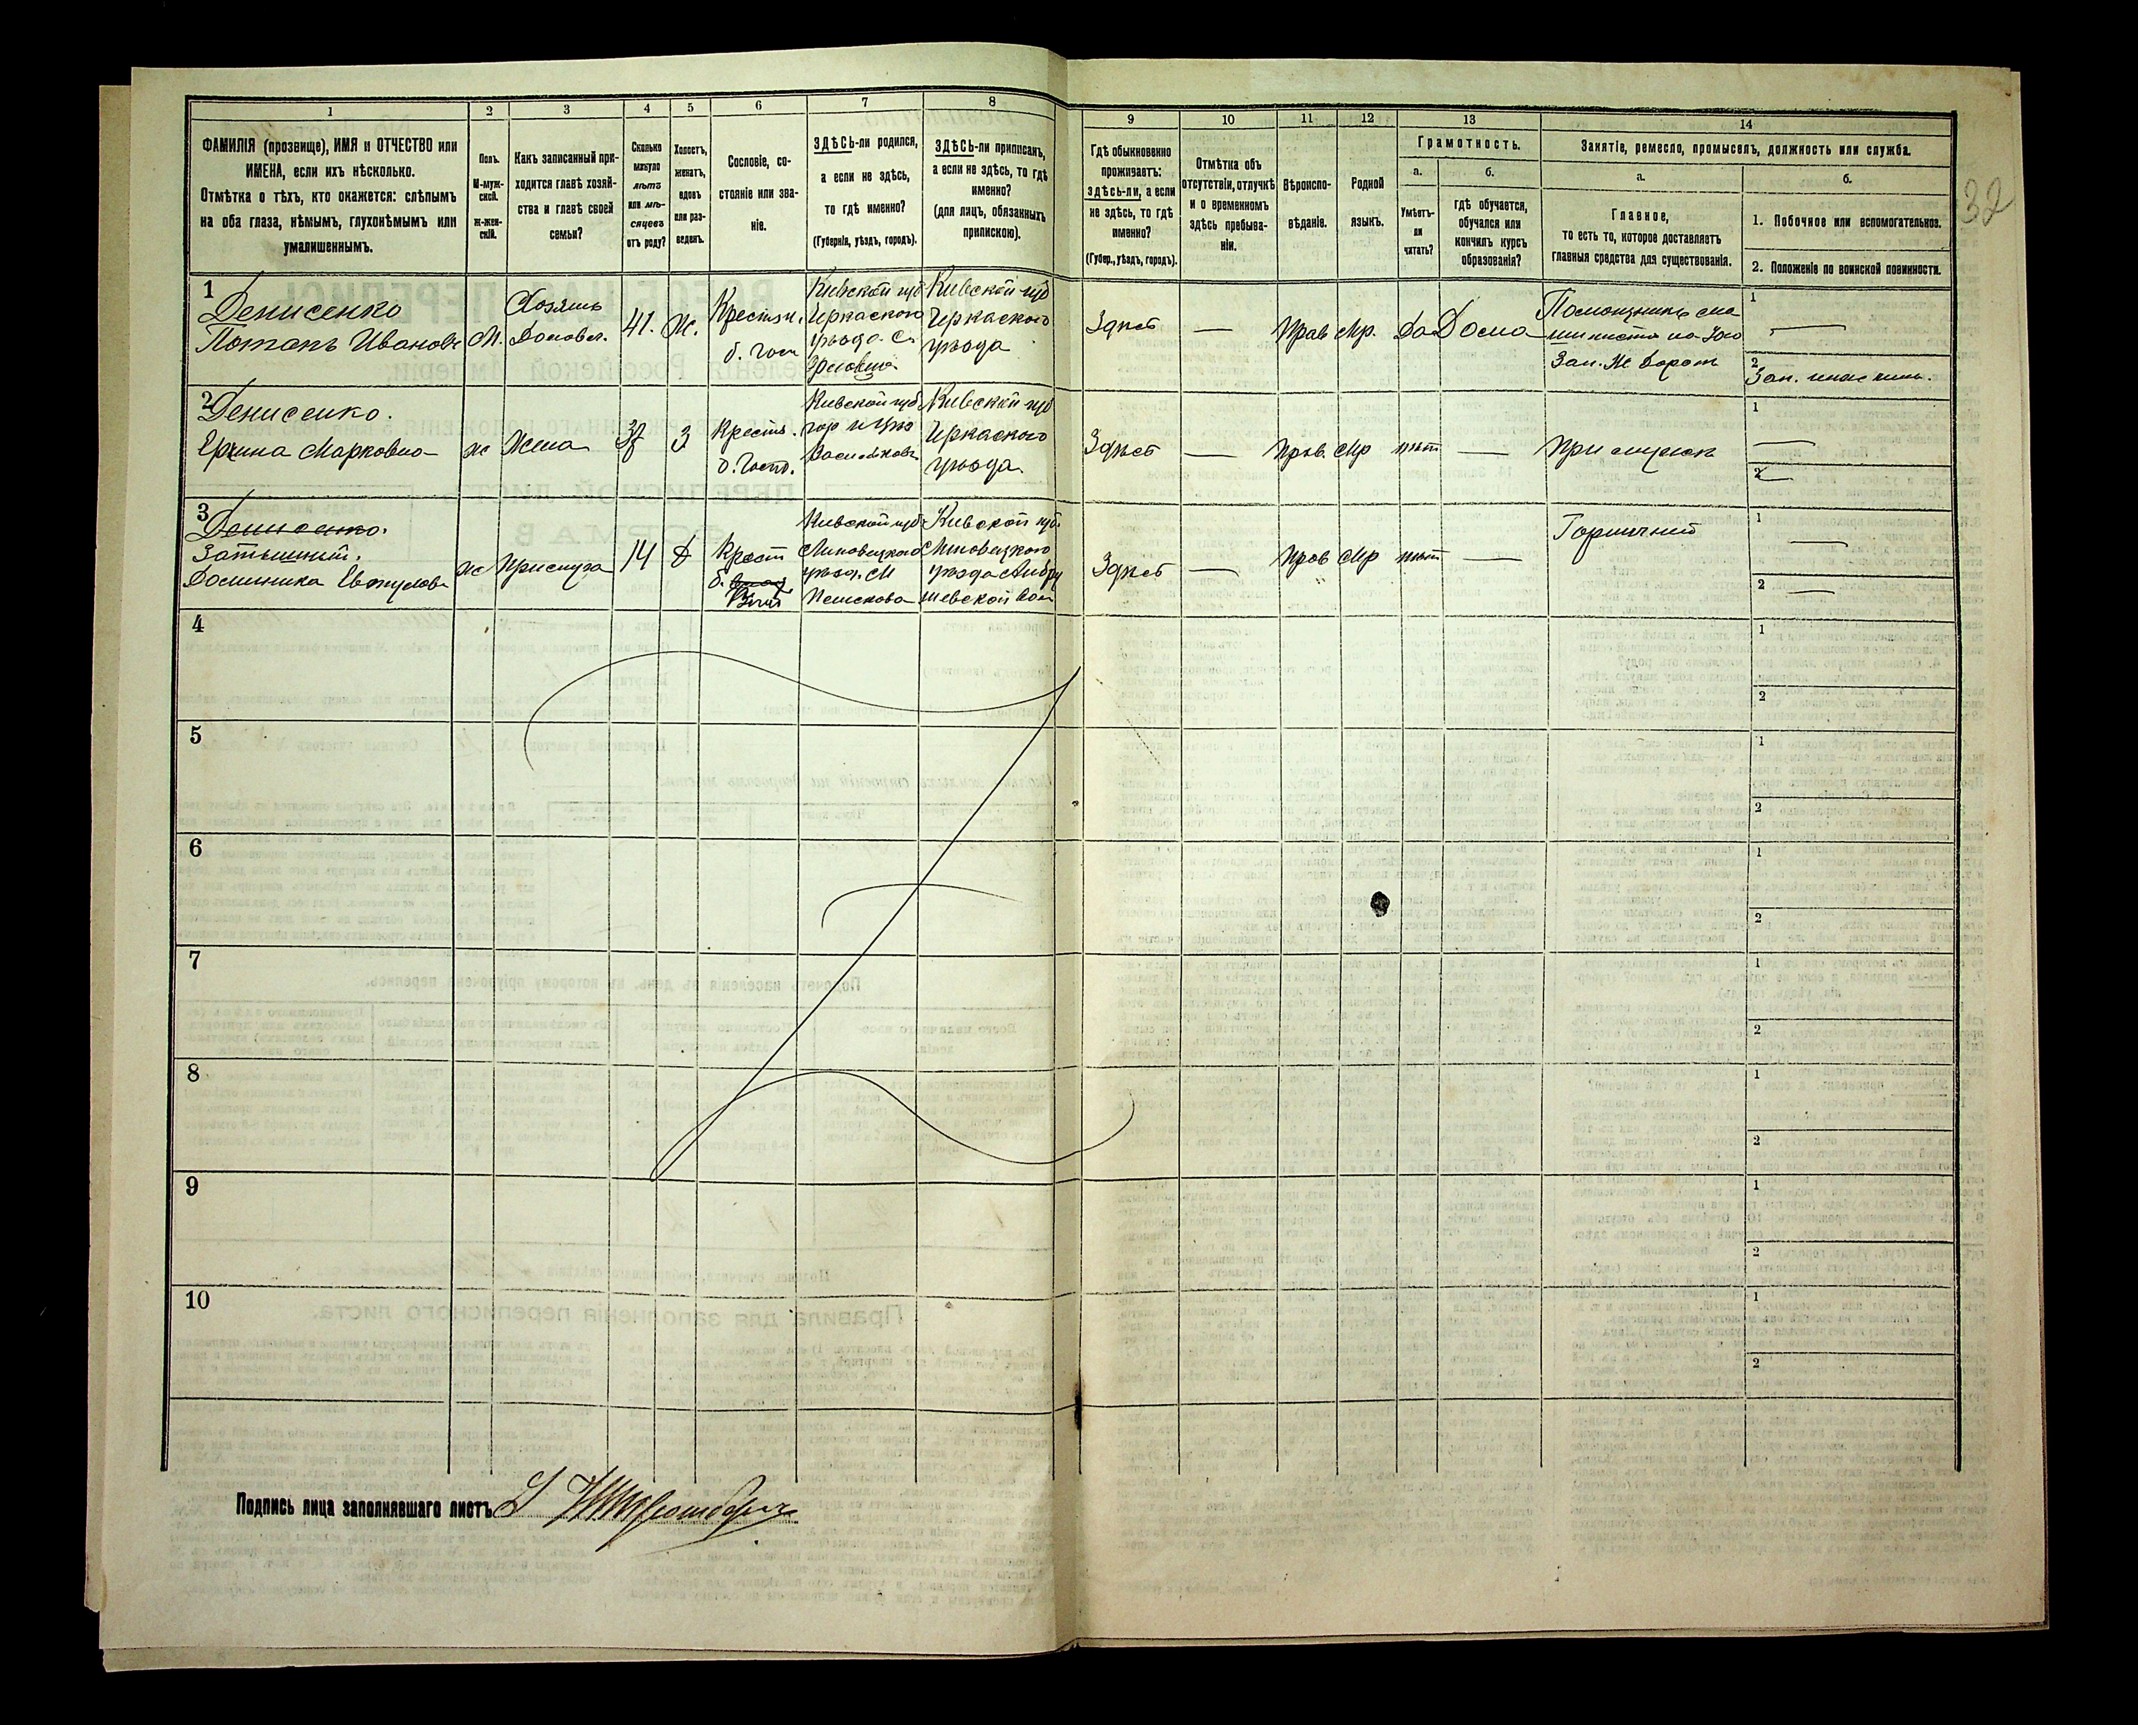 1
2
3
4
5
6
7
8
ФАМИЛІЯ (прозвище), ИМЯ и ОТЧЕСТВО или
ИМЕНА, если ихъ нѣсколько.
Отмѣтка о тѣхъ, кто окажется: слѣпымъ
на оба глаза, нѣмымъ, глухонѣмымъ или
умалишеннымъ.
Полъ.
М-муж-
ской.
Ж-жен-
скій.
Какъ записанный при-
ходится главѣ хозяй-
ства и главѣ своей
семьи?
Сколько
минуло
лѣтъ
или мѣ-
сяцевъ
отъ роду?
Холостъ,
женатъ,
вдовъ
или раз-
веденъ.
Сословіе, со-
стояніе или зва-
ніе.
ЗДѢСЬ-ли родился,
а если не здѣсь,
то гдѣ именно?
(Губернія, уѣздъ, городъ).
ЗДѢСЬ-ли приписанъ,
а если не здѣсь, то гдѣ
именно?
(для лицъ, обязанныхъ
припискою).
9
10
11
12
13
14
Гдѣ обыкновенно
проживаетъ:
здѣсь-ли, а если
не здѣсь, то гдѣ
именно?
(Губер., уѣздъ, городъ).
Отмѣтка объ
отсутствіи, отлучкѣ
и о временномъ
здѣсь пребыва-
ніи.
Вѣроиспо-
вѣданіе.
Родной
языкъ.
Грамотность.
а.
Умѣетъ-
ли
читать?
б.
гдѣ обучается,
обучался или
кончилъ курсъ
образованія?
Занятіе, ремесло, промыселъ, должность или служба.
а.
Главное,
то есть то, которое доставляетъ
главныя средства для существованія.
б.
1. Побочное или вспомогательное.
2. Положеніе по воинской повинности.
32
1
Денисенко
Потапъ Иванов
М.
Хозяинъ
Домовл.
41.
Ж.
Крестьян.
б. Госп
Кіевской губ
Черкаского
уѣзда с.
Кіевской губ
Черкаского
уѣзда
Здѣсь
—
Прав
Мр.
Да
Дома
Помощникъ ма
шиниста на Юго
Зап. Ж Дорогѣ
1
—
2
2
Денисенко.
Марковна
ж
Жена
37
З
Крестьъ.
б. Госп.
Кіевской губ
Васильковъ
Кіевской губ
Черкаского
уѣзда
Здѣсь
—
Прав.
Мр
нѣт
—
При мужѣ
1
—
2
—
3
Денисенко.
Доминика
ж
Прислуга
14
Д
Крест
б.
Кіевской губ
Липовецкого
уѣзд. М
Кіевской губ.
Липовецкого
уѣзда
Здѣсь
—
Прав
Мр
нѣт
—
Горничной
1
—
2
—
4
1
2
5
1
2
6
1
2
7
1
2
8
1
2
9
1
2
10
1
2
Подпись лица заполнявшаго листъ